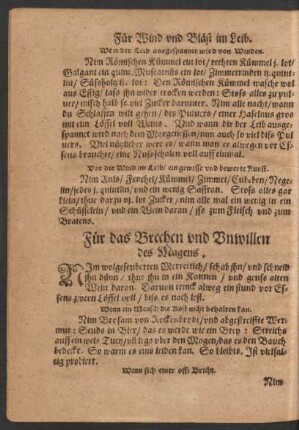 Für Wind vnd Bläst im Leib.
Wem der Leib ausgespannet wird von Winden.
Nim Römischen Kümmel ein lot/ rechten Kümmel j. lot/
Galgant ein quint. Muscatnüs ein lot/ Zimmetrinden ij. quint-
lin/ Süssholtz ij. lot: Den Römischen Kümmel wasche wol
aus Essig/ lass jhn wider trocken werden: Stoss alles zu pul-
uer/ misch halb so viel Zucker darunter. Nim alle nacht/ wann
du Schlaffen wilt gehen/ des Puluers/ einer Haselnus gros
mit ein Löffel voll Weins. Vnd wann dir der Leib ausge-
spannet wird nach dem Morgenessen/ nim auch so viel diss Pul-
uers. Viel nützlicher were es/ wann man es alwegen vor Es-
sens brauchte/ eine Nusschalen voll auff einmal.
Vor die Wind im Leib/ ein gewisse vnd bewerte Kunst.
Nim Anis/ Fenchel/ Kümmel/ Zimmet/ Cubeben/ Nege-
lin/ jedes j. quintlin/ vnd ein wenig Saffran. Stoss alles gar
klein/ thu darzu vj. lot Zucker/ nim alle mal ein wenig in ein
Schüsselin/ vnd ein Wein daran/ iss zum Fleisch vnd zum
Bratens.
Für das Brechen vnd Vnwillen
des Magens.
NIm wolgeseuberten Merrettich/ schab jhn/ vnd schneid
jhn dünn/ thue jhn in ein Kannen/ vnd geuss alten
Wein daran. Daruon trinck alweg ein stund vor Es-
sens zween Löffel voll/ biss es nach lest.
Wenn ein Mensch die Kost nicht behalten kan.
Nim Brosam von Rockenbrodt/ vnd abgestreiffte Wer-
mut: Seuds in Bier/ das es werde wie ein Brey: Streichs
auff ein weis Tuch/ vnd legs vber den Magen/ das es den Bauch
bedecke. So warm es eins leiden kan. So bleibts. Ist vielfal-
tig probiert.
Wenn sich einer offt Bricht.
Nim